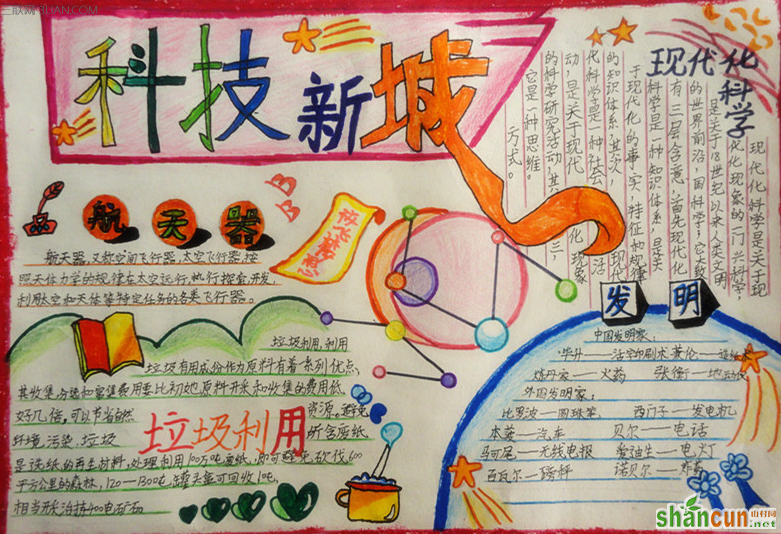 三联网 3LIAN.COM
科技新城
航天器
航天器,又教空间飞行器,太空飞行器,按
照天体力学的规律在太空运行,执行探索,开发,
利用太空和天体等特定任务的各类飞行器。
放飞梦想
现代化
科学
现代化科学是关于
现代化现象的一门兴科学,
是关于18世纪以来人类文明
的世界前沿,国科学,它大致
有三层含意,首先现代化
科学是一种知识体系,是关
于现代化的事实,特征和规律
的知识体系,其次,现代
化科学是一种社会活
动,是关于现代化现象
的科学研究活动,其三,
它是一种思维
方式。
垃圾利用,利用
垃圾有用成份作为原料有着一系列优点,
其收集,分选和富集费用要比初始原料开采和收集的费用低
好几倍,可以节省自然资源,避免
环境污染,垃圾所含废纸
是造纸的再生材料,处理利用100万吨废纸,即可避免砍伐600
平方公里的森林,120—1300吨罐头盒可回收10吨,
相当开采冶炼400吨矿石
垃圾利用
发明
中国发明家:
毕升——活字印刷术 蔡伦——造纸术
炼丹家——火药 张衡——地动仪
外国发明家:
比罗波——圆珠笔 西门子——发电机
本茨——汽车 贝尔——电话
马可尼——无线电报 爱迪生——电灯
百瓦尔——磅秤 诺贝尔——炸药
shancun
山村网
.net